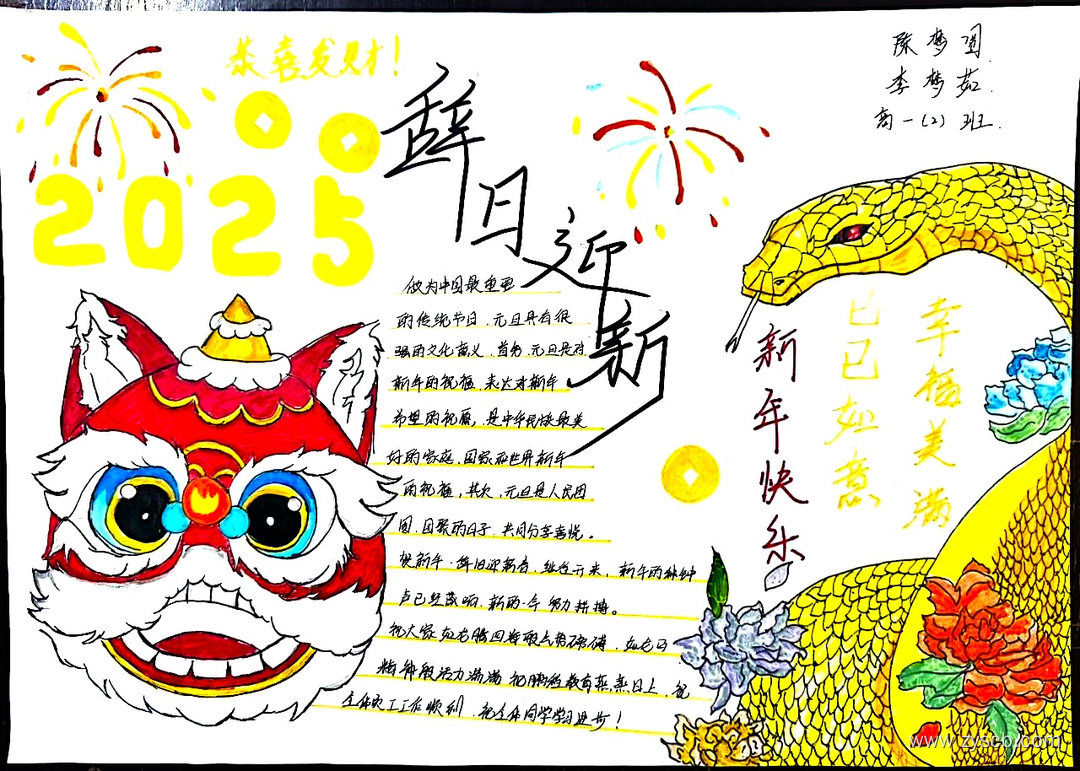 恭喜发财！
陈梦圆
李梦茹
高一（2）班
2025
辞旧迎新
做为中国最重要
的传统节日，元旦具有很
强的文化意义，首先，元旦是对
新年的祝福，表达对新年
希望的祝愿，是中华民族最美
好的家庭、国家和世界新年
的祝福，其次，元旦是人民团
圆、团聚的日子，共同分享喜悦。
新年，辞旧迎新春，新年的钟
声已经敲响，新的一年努力拼搏。
祝大家如龙腾四海
精神般活力满满 教育蒸蒸日上，祝
全体职工工作顺利，祝全体同学学习进步！
新年快乐
巳巳如意
幸福美满
www.zyscb.com